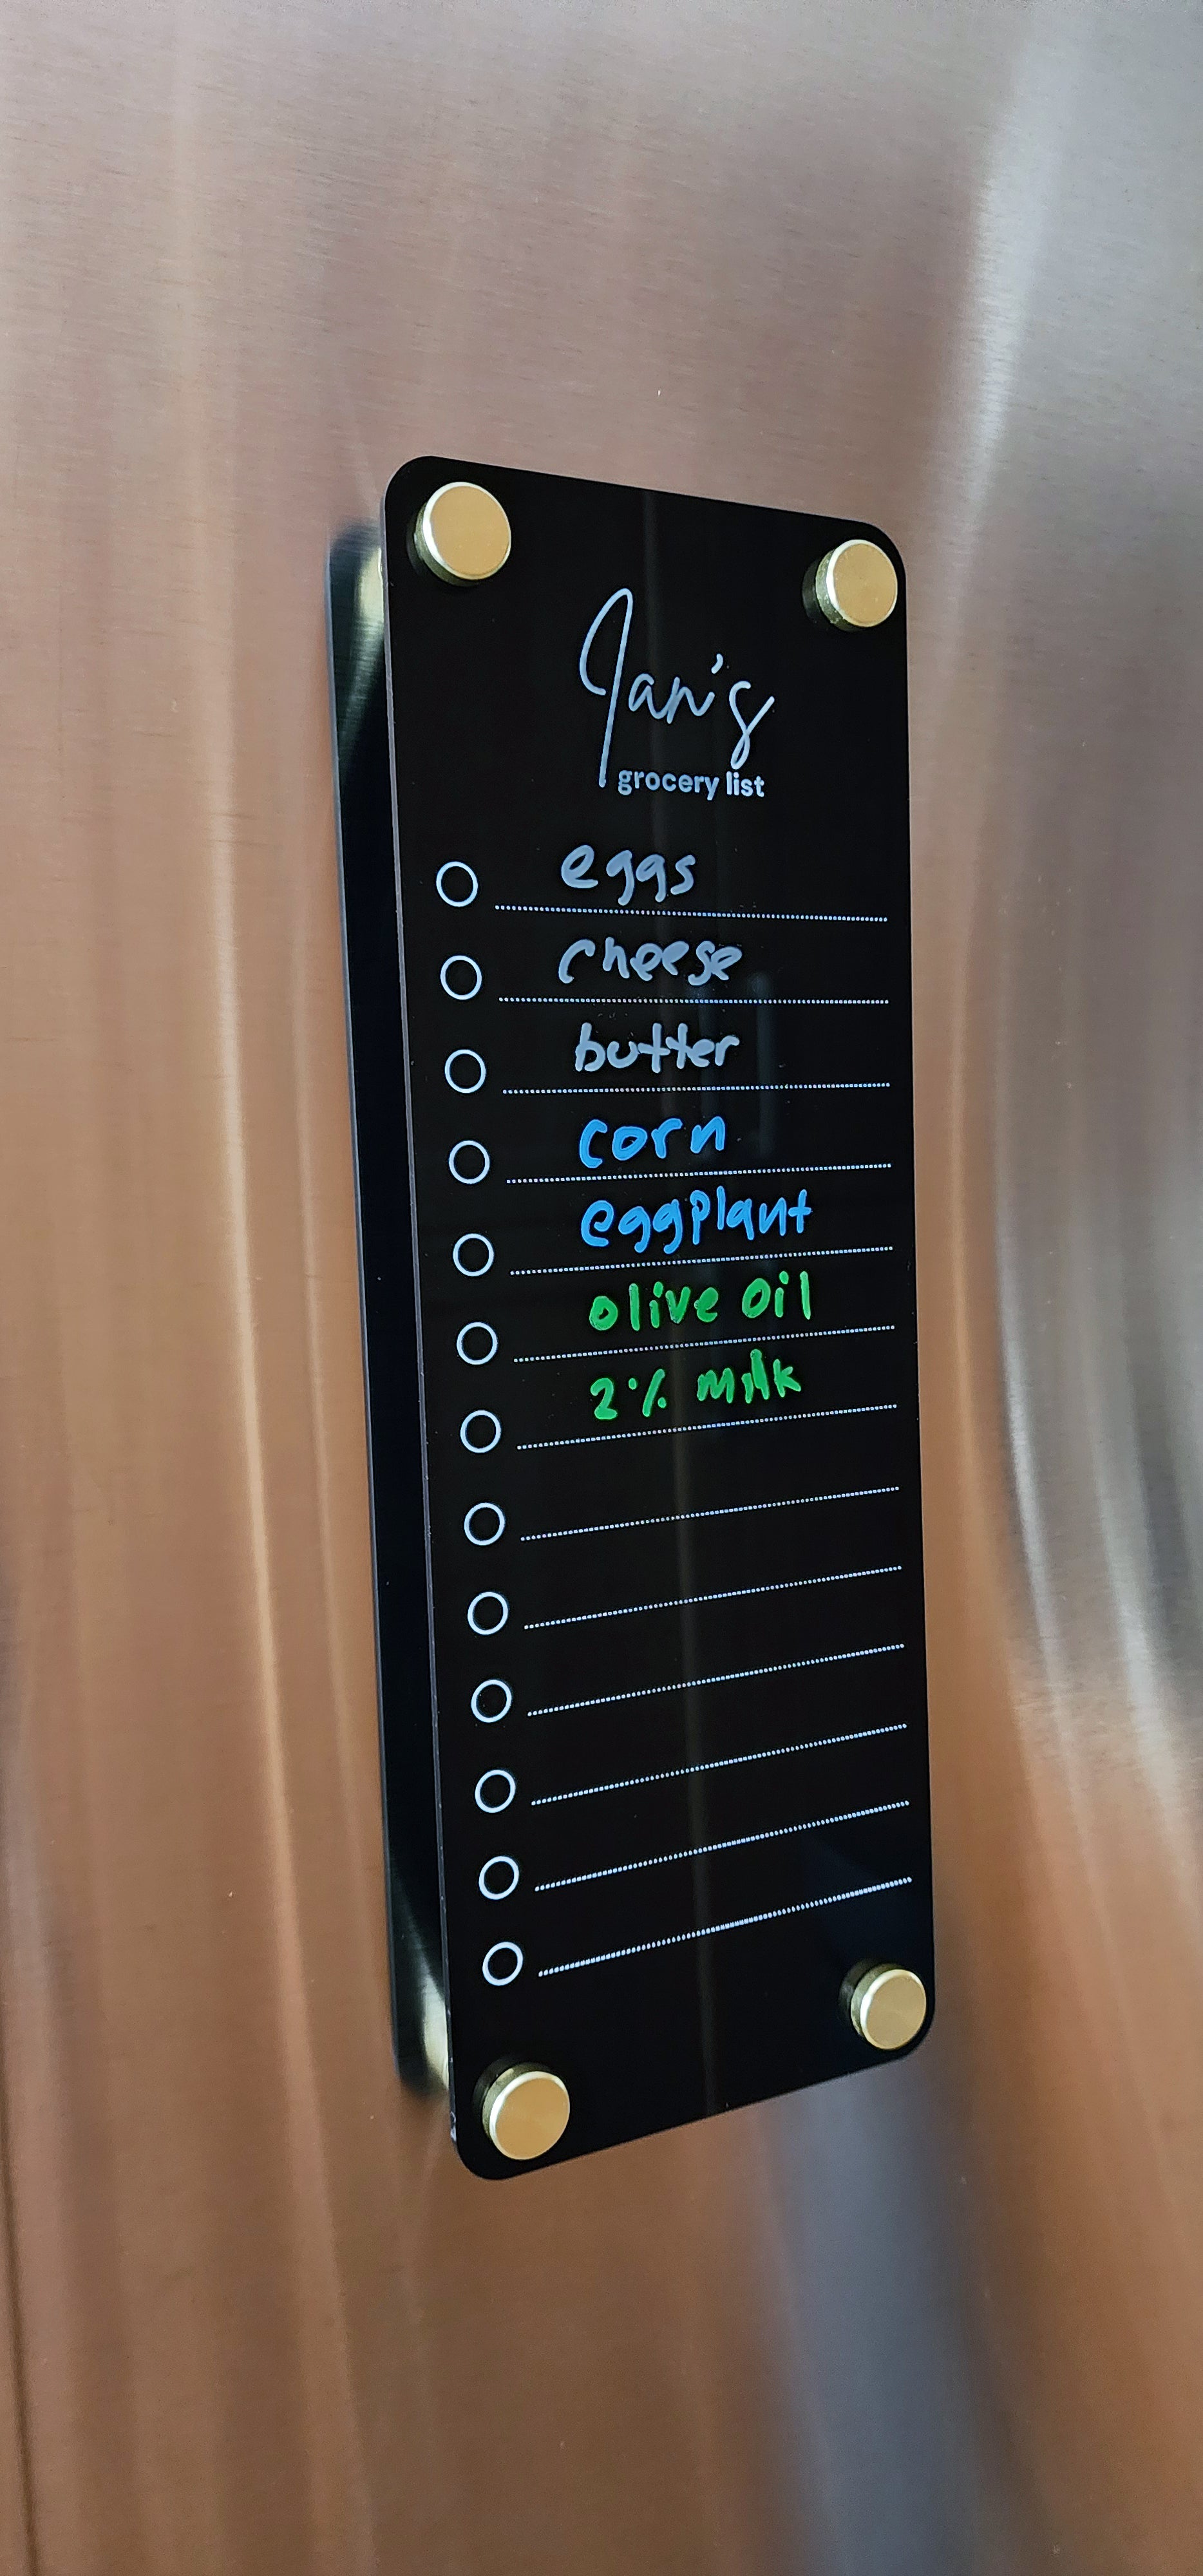 Jan's
grocery list
eggs
cheese
butter
corn
eggplant
olive oil
2% milk